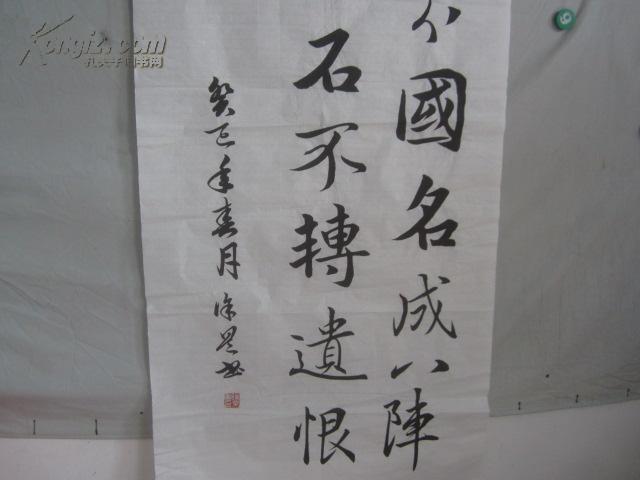 分國名成八陣
石不轉遺恨
癸巳年春月 徐
Kongfz.com
孔夫子旧书网